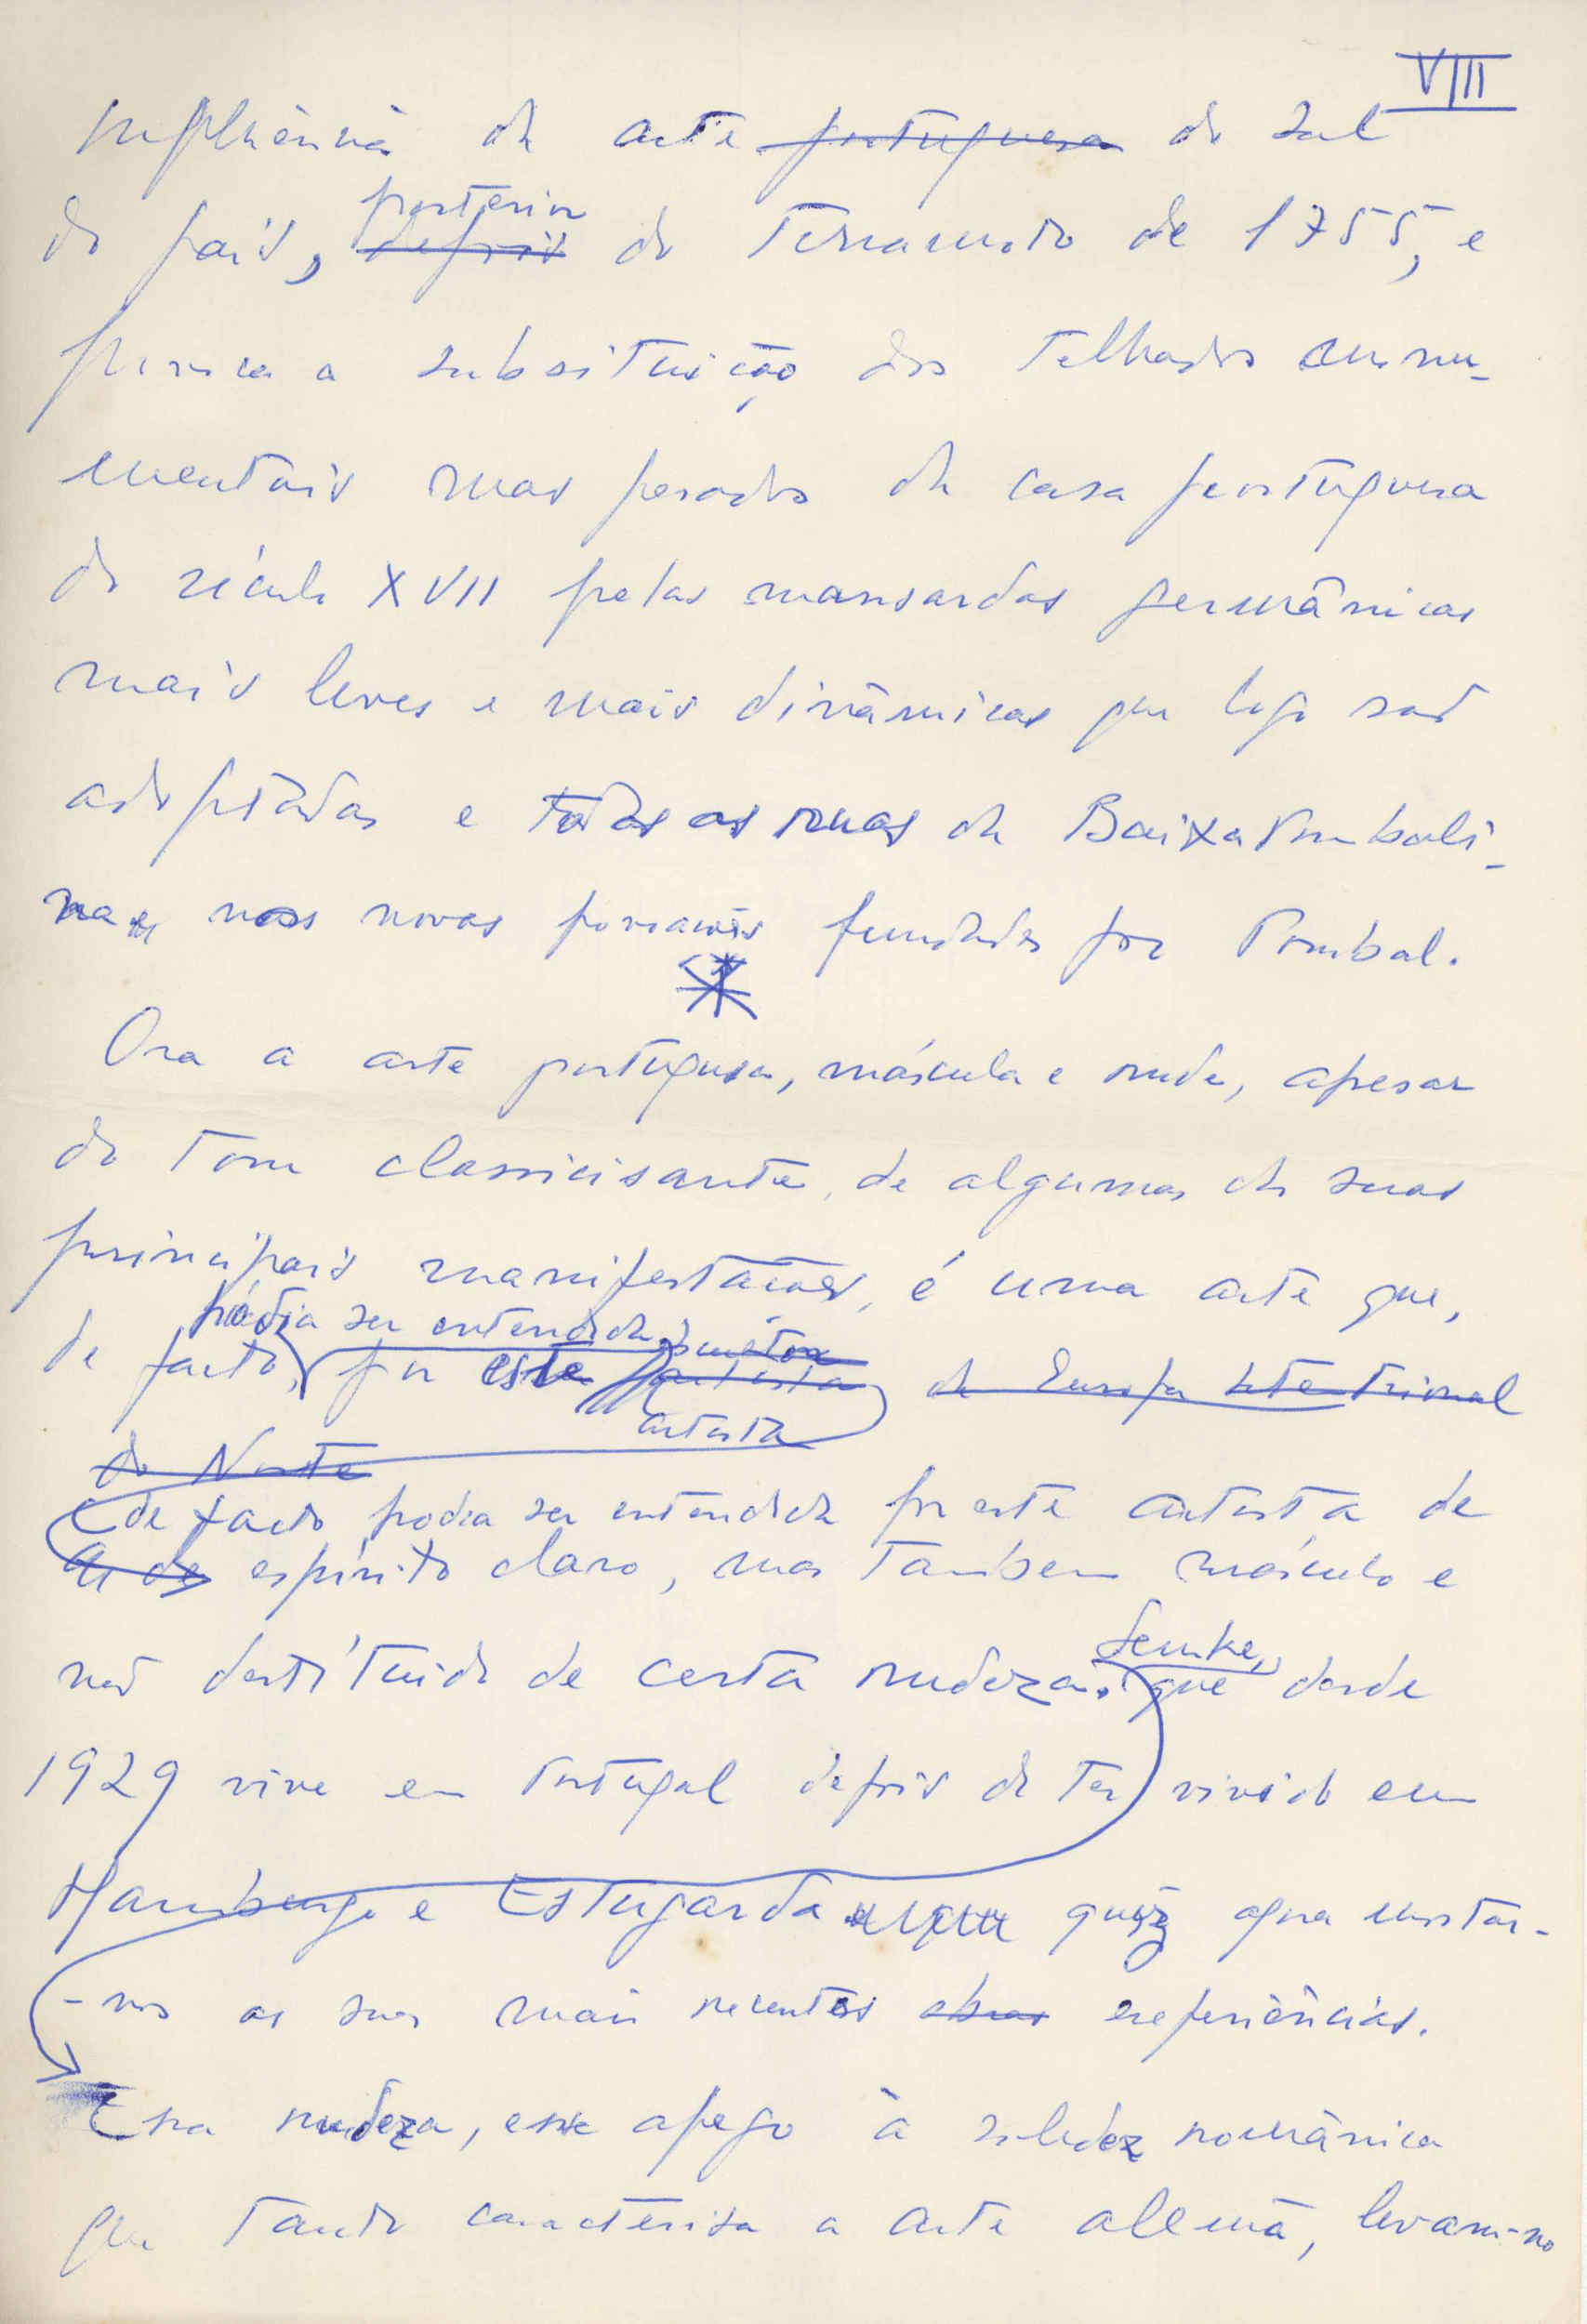 VIII
influência da arte portuguesa do Sul
posterior
do país, depois do Terramoto de 1755, e
provoca a subsituição dos Telhados monu-
mentais mas pesados da casa portuguesa
do século XVII pelas mansardas germânicas
mais leves e mais dinâmicas que logo são
adoptadas e todas as ruas da Baixa Pombali-
na e nas novas povoações fundadas por Pombal.
Ora a arte portuguesa, máscula e rude, apesar
do tom classicisante, de algumas das suas
principais manifestações, é uma arte que,
pódia ser entendida
de facto, por este artista da Europa Setentrional
artista
do Norte
e de facto podia ser entendida por este artista de
espírito claro, mas tambem másculo e
Semke,
não destítuido de certa rudeza. que desde
1929 vive em Portugal depois de ter vivido em
Hamburgo e Estugarda quiz agora mostrar-
-nos as suas mais recentes obras experiências.
Essa rudeza, esse apego à solidez românica
que tanto caracterisa a arte alemã, levam-no